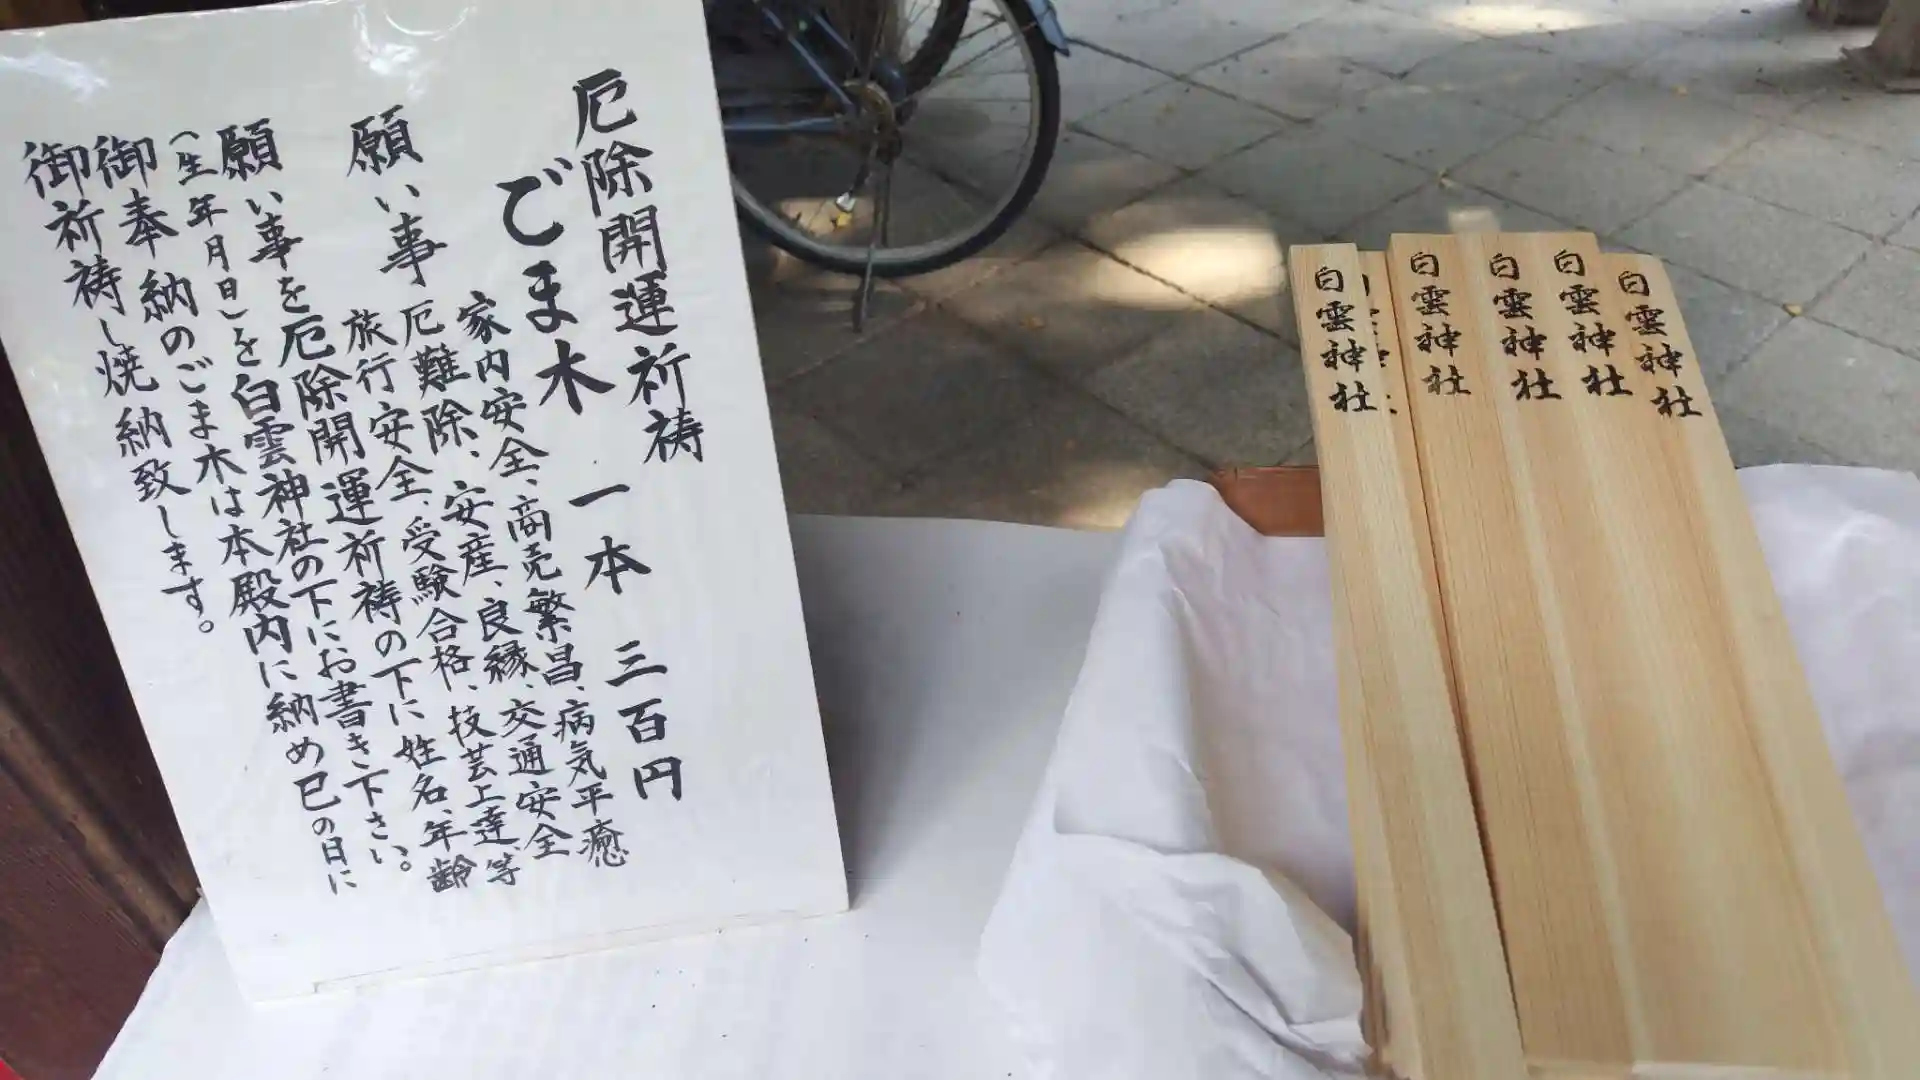 厄除開運祈祷
ごま木 一本 三百円
願い事 家内安全、商売繁昌、病気平癒
厄難除、安産、良縁、交通安全
旅行安全、受験合格、技芸上達、等
願い事を厄除開運祈祷の下に姓名、年齢
(生年月日)を白雲神社の下にお書き下さい。
御奉納のごま木は本殿内に納め巳の日に
御祈祷し焼納致します。
白雲神社
白雲神社
白雲神社
白雲神社
白雲神社